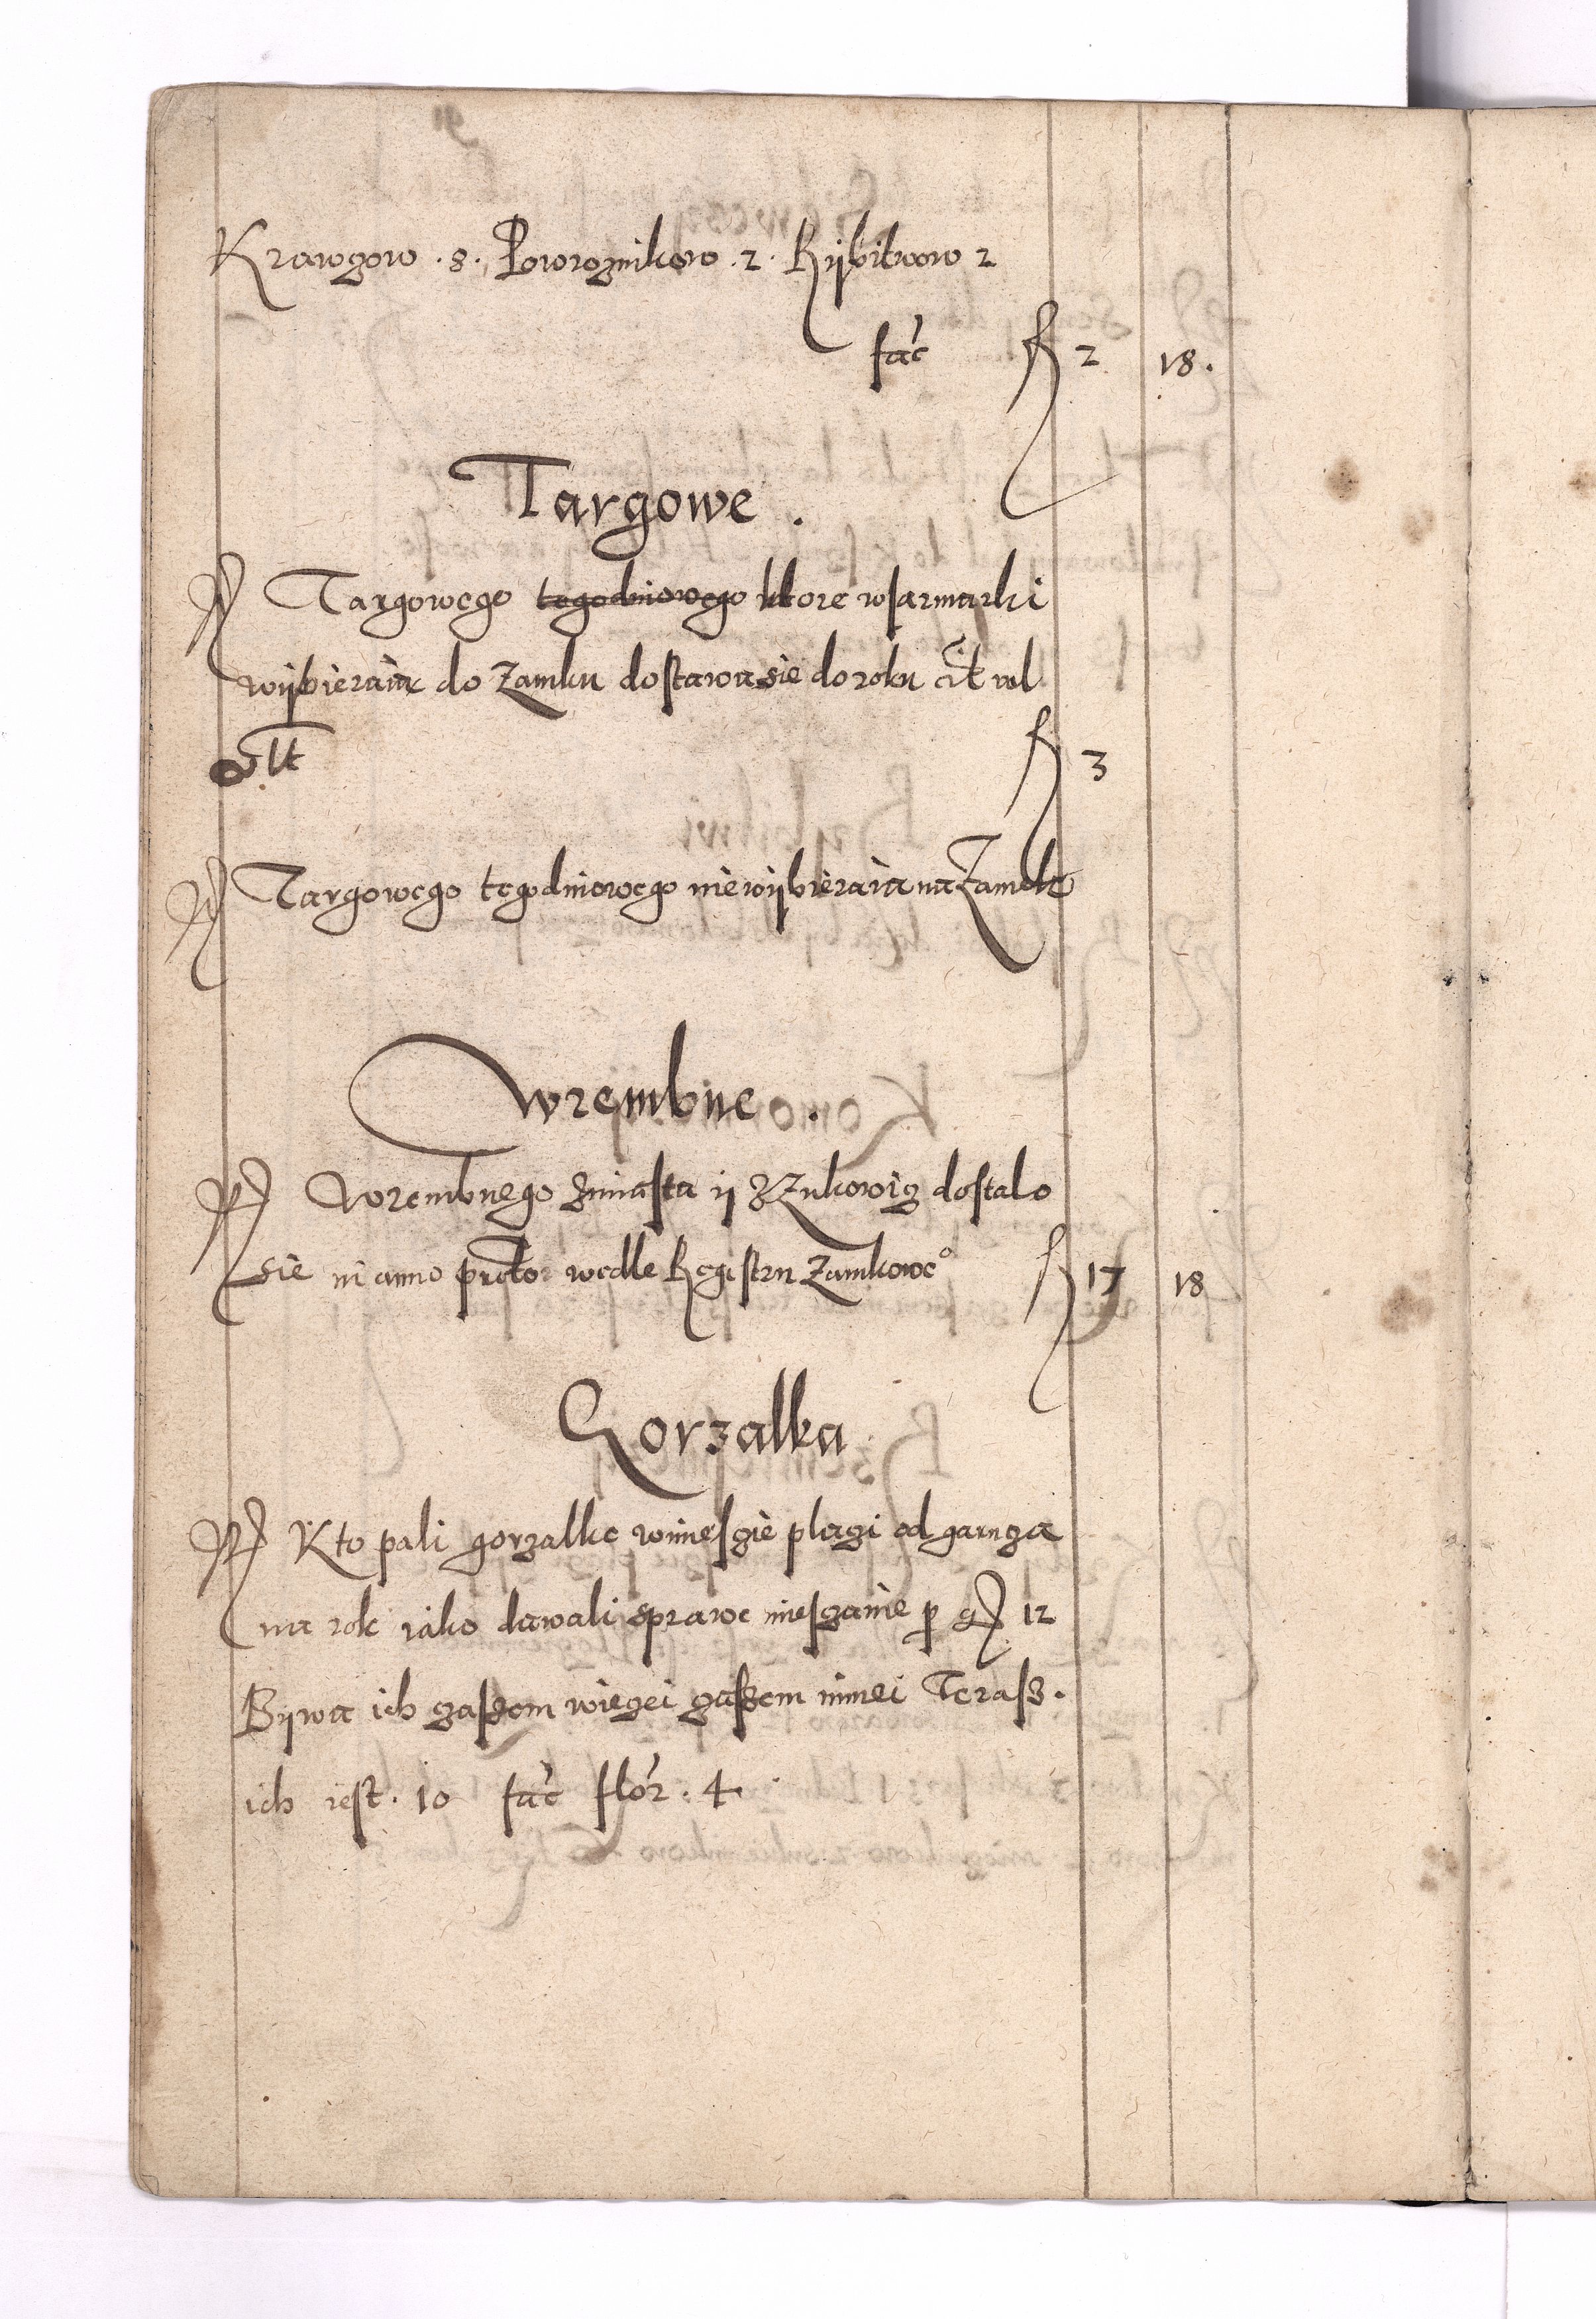 Krawczow . 8 . Powroznikow . 2 . Rijbitwow 2
fac̃ fl 2 18 .
Targowe .
Targowego tegodniowego ktore wJarmarki
wijbieraią do Zamku dostawa sie do roku cit vel
vlt fl 3
Targowego tegodniowego niewijbieraia na Zamek
Wrembne .
Wrembnego zmiasta ij zZukowicz dostalo
sie in anno wedle Registru Zamkowe° fl 17 18
Gorzalka
Kto pali gorzalke wmiesczie placzi od garncza
na rok iako dawali sprawe miesczanie p gr 12
Bijwa ich czassem wieczei czassem mniei Terass .
ich iest . 10 fac̃ flor . 4 .